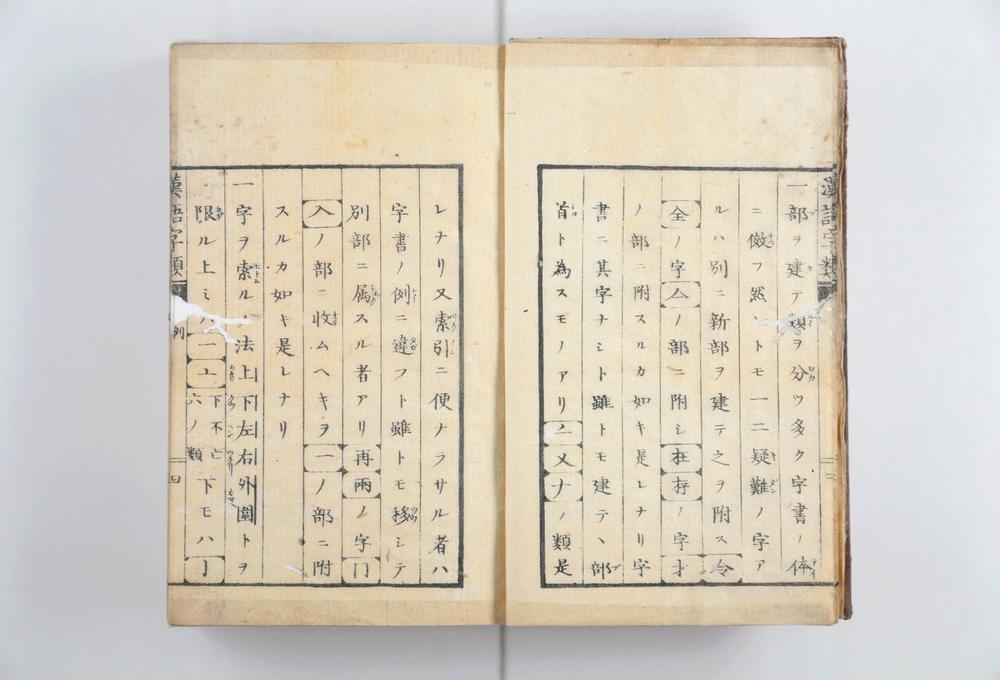 漢語字類
一部ヲ建テ類ヲ分ツ多ク字書ノ体
ニ倣フ然レトモ一二疑難ノ字ア
ルハ別ニ新部ヲ建テ之ヲ附ス令
全ノ字亼ノ部ニ附シ在存ノ字
ノ部ニ附スルカ如キ是レナリ字
書ニ其字ナシト雖トモ建テヽ部
首ト為スモノアリ𠂉乂ナノ類是
レナリ又索引ニ便ナラサル者ハ
字書ノ例ニ違フト雖トモ移シテ
別部ニ属スル者アリ再兩ノ字冂
入ノ部ニ收ムヘキヲ一ノ部ニ附
スルカ如キ是レナリ
一字ヲ索ルノ法上下左右外圍トヲ
限ル上ミハ一亠下不亡六ノ類下モハ
漢語字類 例 四